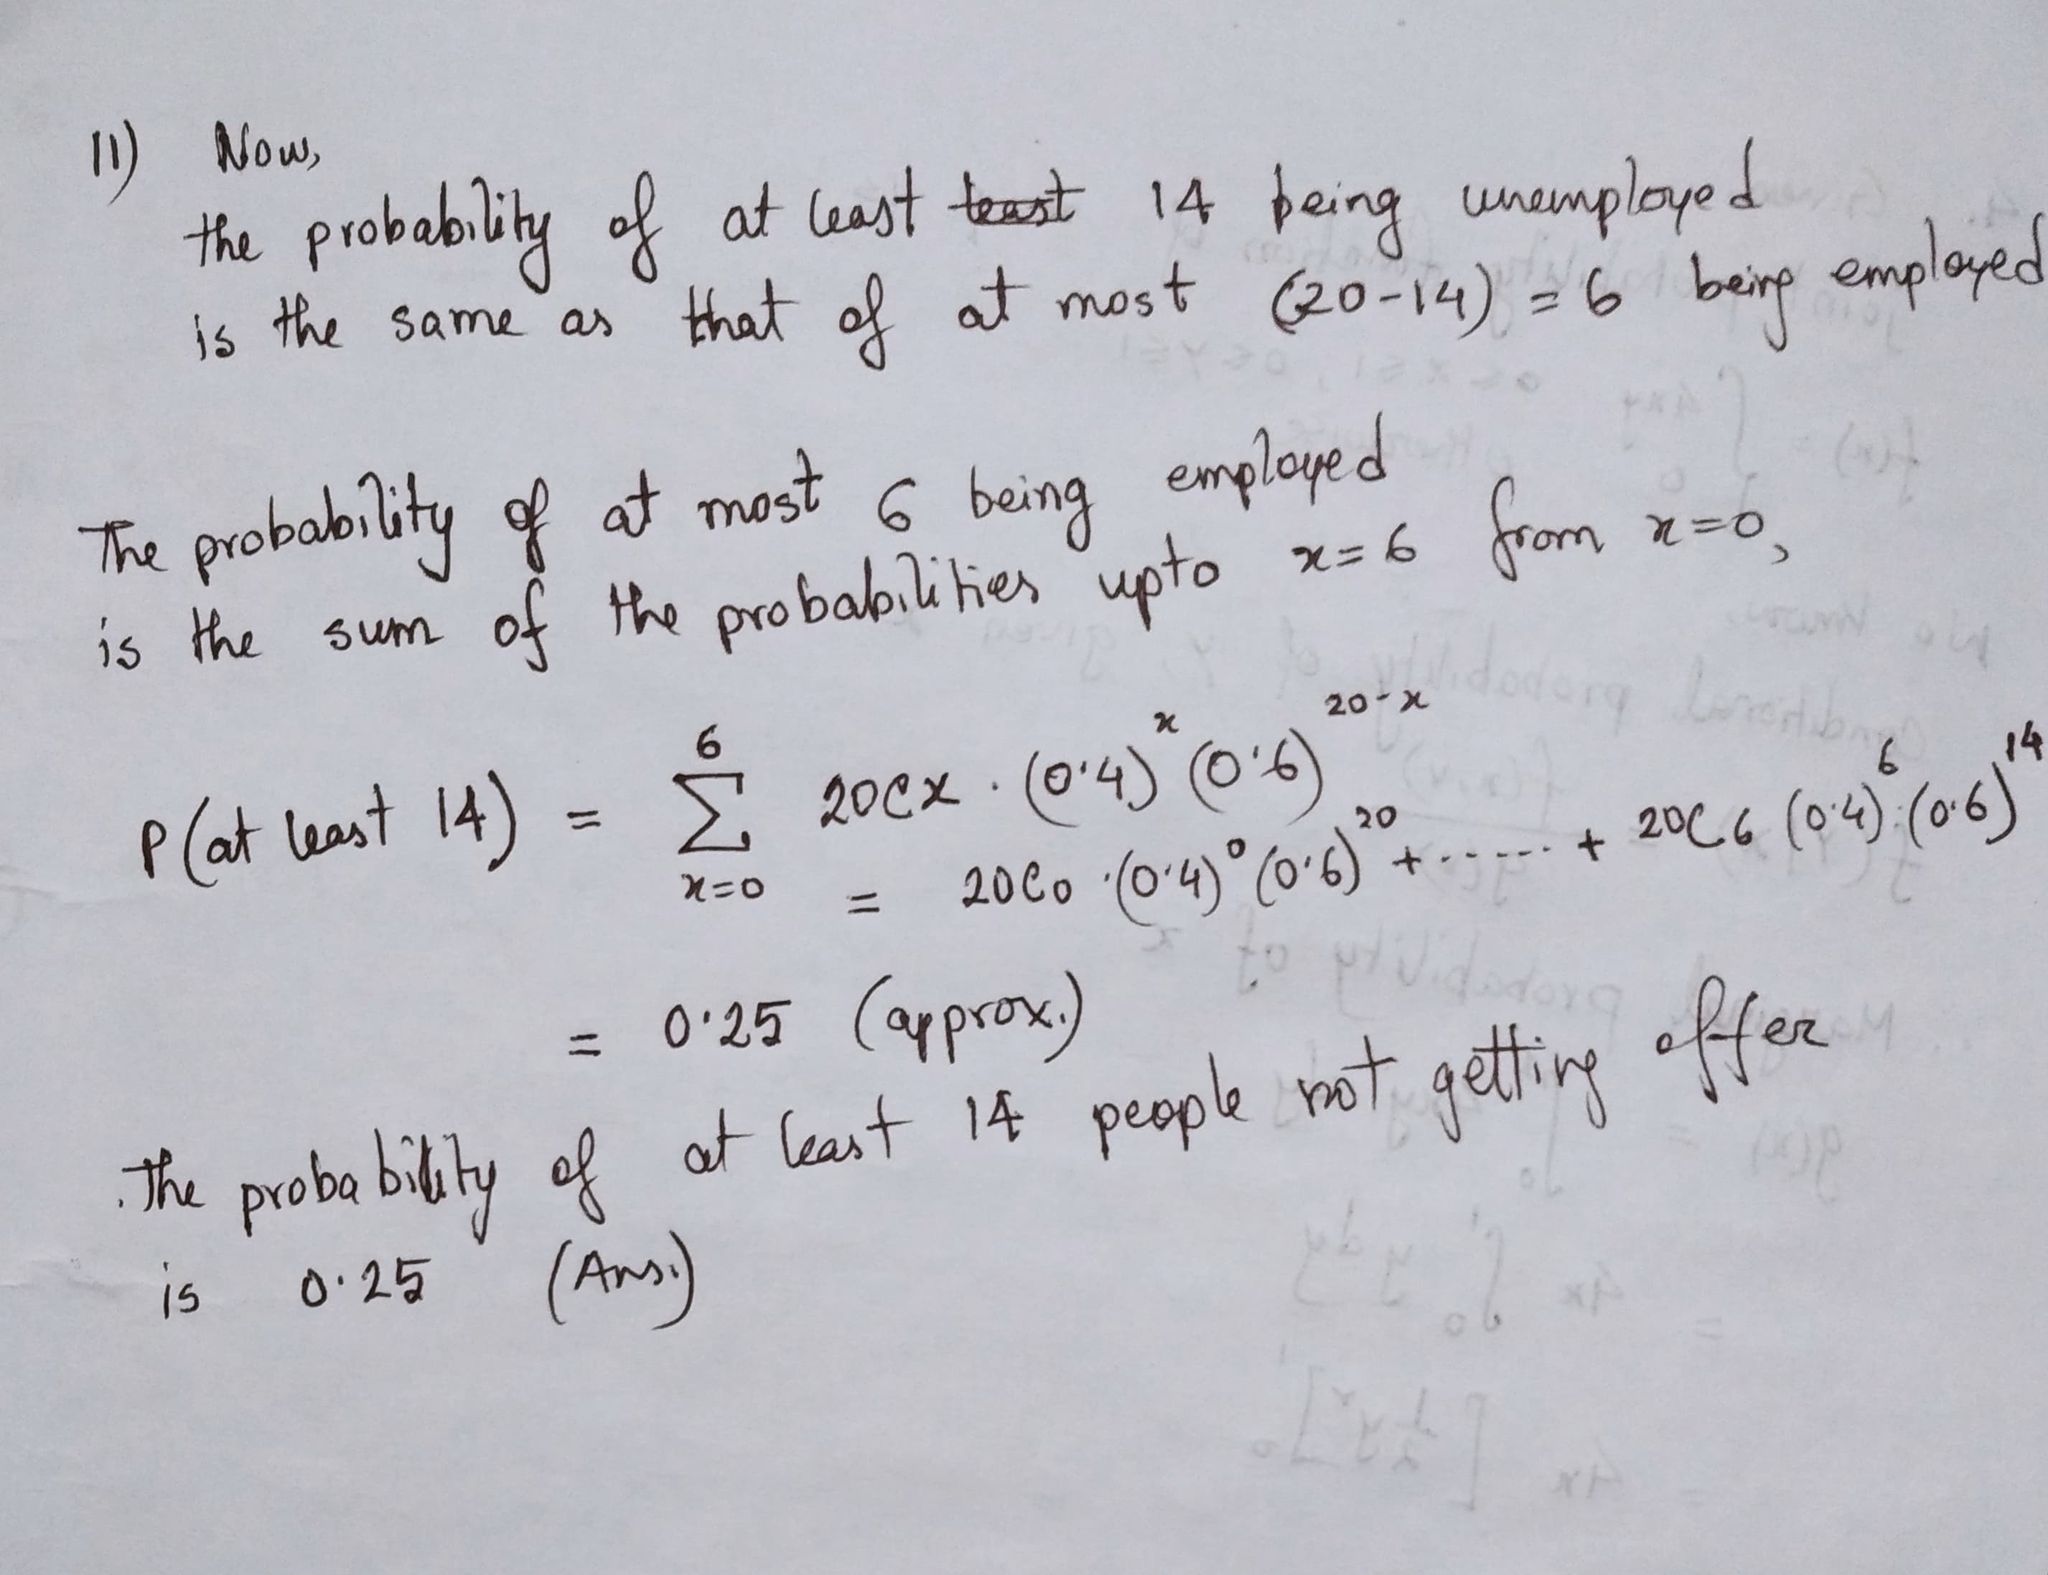 11) Now,
the probability of at least least 14 being unemployed
is the same as that of at most (20-14) = 6 being employed
The probability of at most 6 being employed
is the sum of the probabilities upto x=6 from x=0,
P(at least 14) = 6 Σ x=0 20Cx . (0.4)^x (0.6)^20-x
= 20C0 .(0.4)^0 (0.6)^20 + ...... + 20C6 (0.4)^6 . (0.6)^14
= 0.25 (approx.)
. The probability of at least 14 people not getting offer
is 0.25 (Ans.)